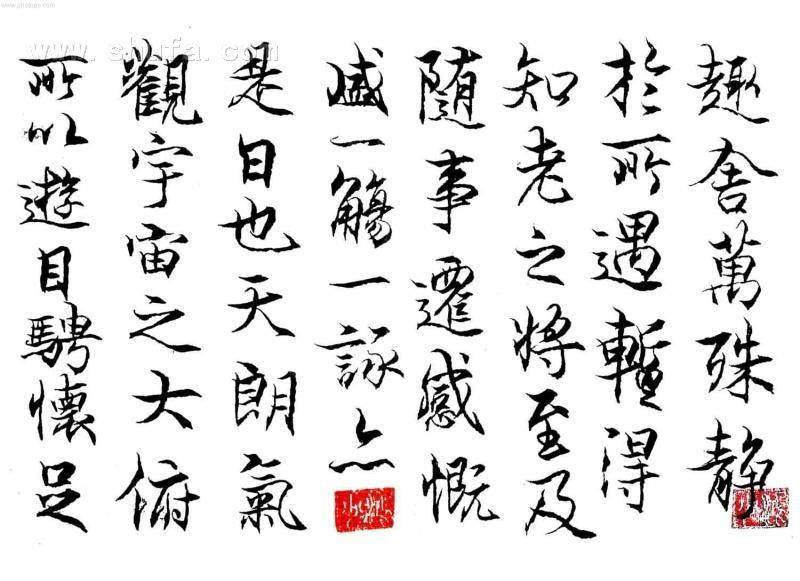 趣舍萬殊静
於所遇暫得
知老之将至及
随事遷感慨
盛一觴一詠亦
是日也天朗氣
觀宇宙之大俯
所以遊目騁懷足
www.shufa.com